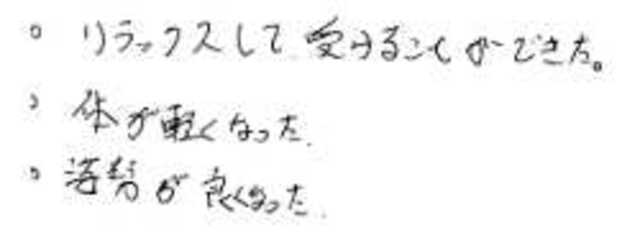 。リラックスして受けることができた。
。体が軽くなった.
。姿勢が良くなった.